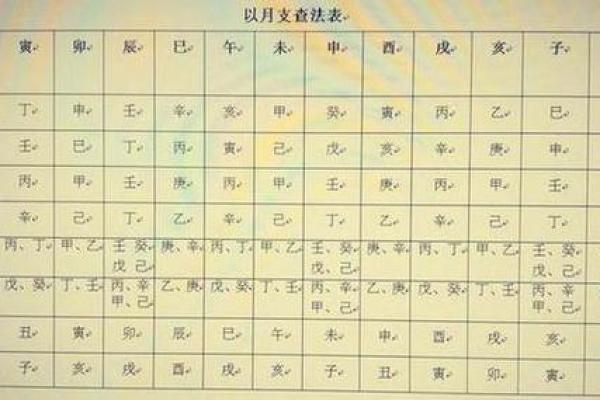 以月支查法表
寅 卯 辰 巳 午 未 申 酉 戌 亥 子
丁 申 壬 辛 亥 甲 癸 寅 丙 乙 巳
壬 巳 丁 丙 寅 己 戊 亥 辛 庚 申
丙 甲 壬 庚 丙 甲 壬 庚 丙 甲 壬
辛 己 丁 乙 辛 己 丁 乙 辛 己 丁
丙、丁 甲、乙 壬 癸 庚、辛 丙、丁 甲、乙 壬、癸 庚、辛 丙、丁 甲、乙 壬、癸
戊 己 戊、己 戊、己
戊、癸 丁、壬 丙、辛 乙、庚 戊、癸 丁、壬 丙、辛 乙、庚 戊、癸 丁、壬 丙、辛
甲、己 甲、己 甲、己
丑 寅 卯 辰 巳 午 未 申 酉 戌 亥
子 亥 戌 酉 戌 亥 子 丑 寅 卯 寅